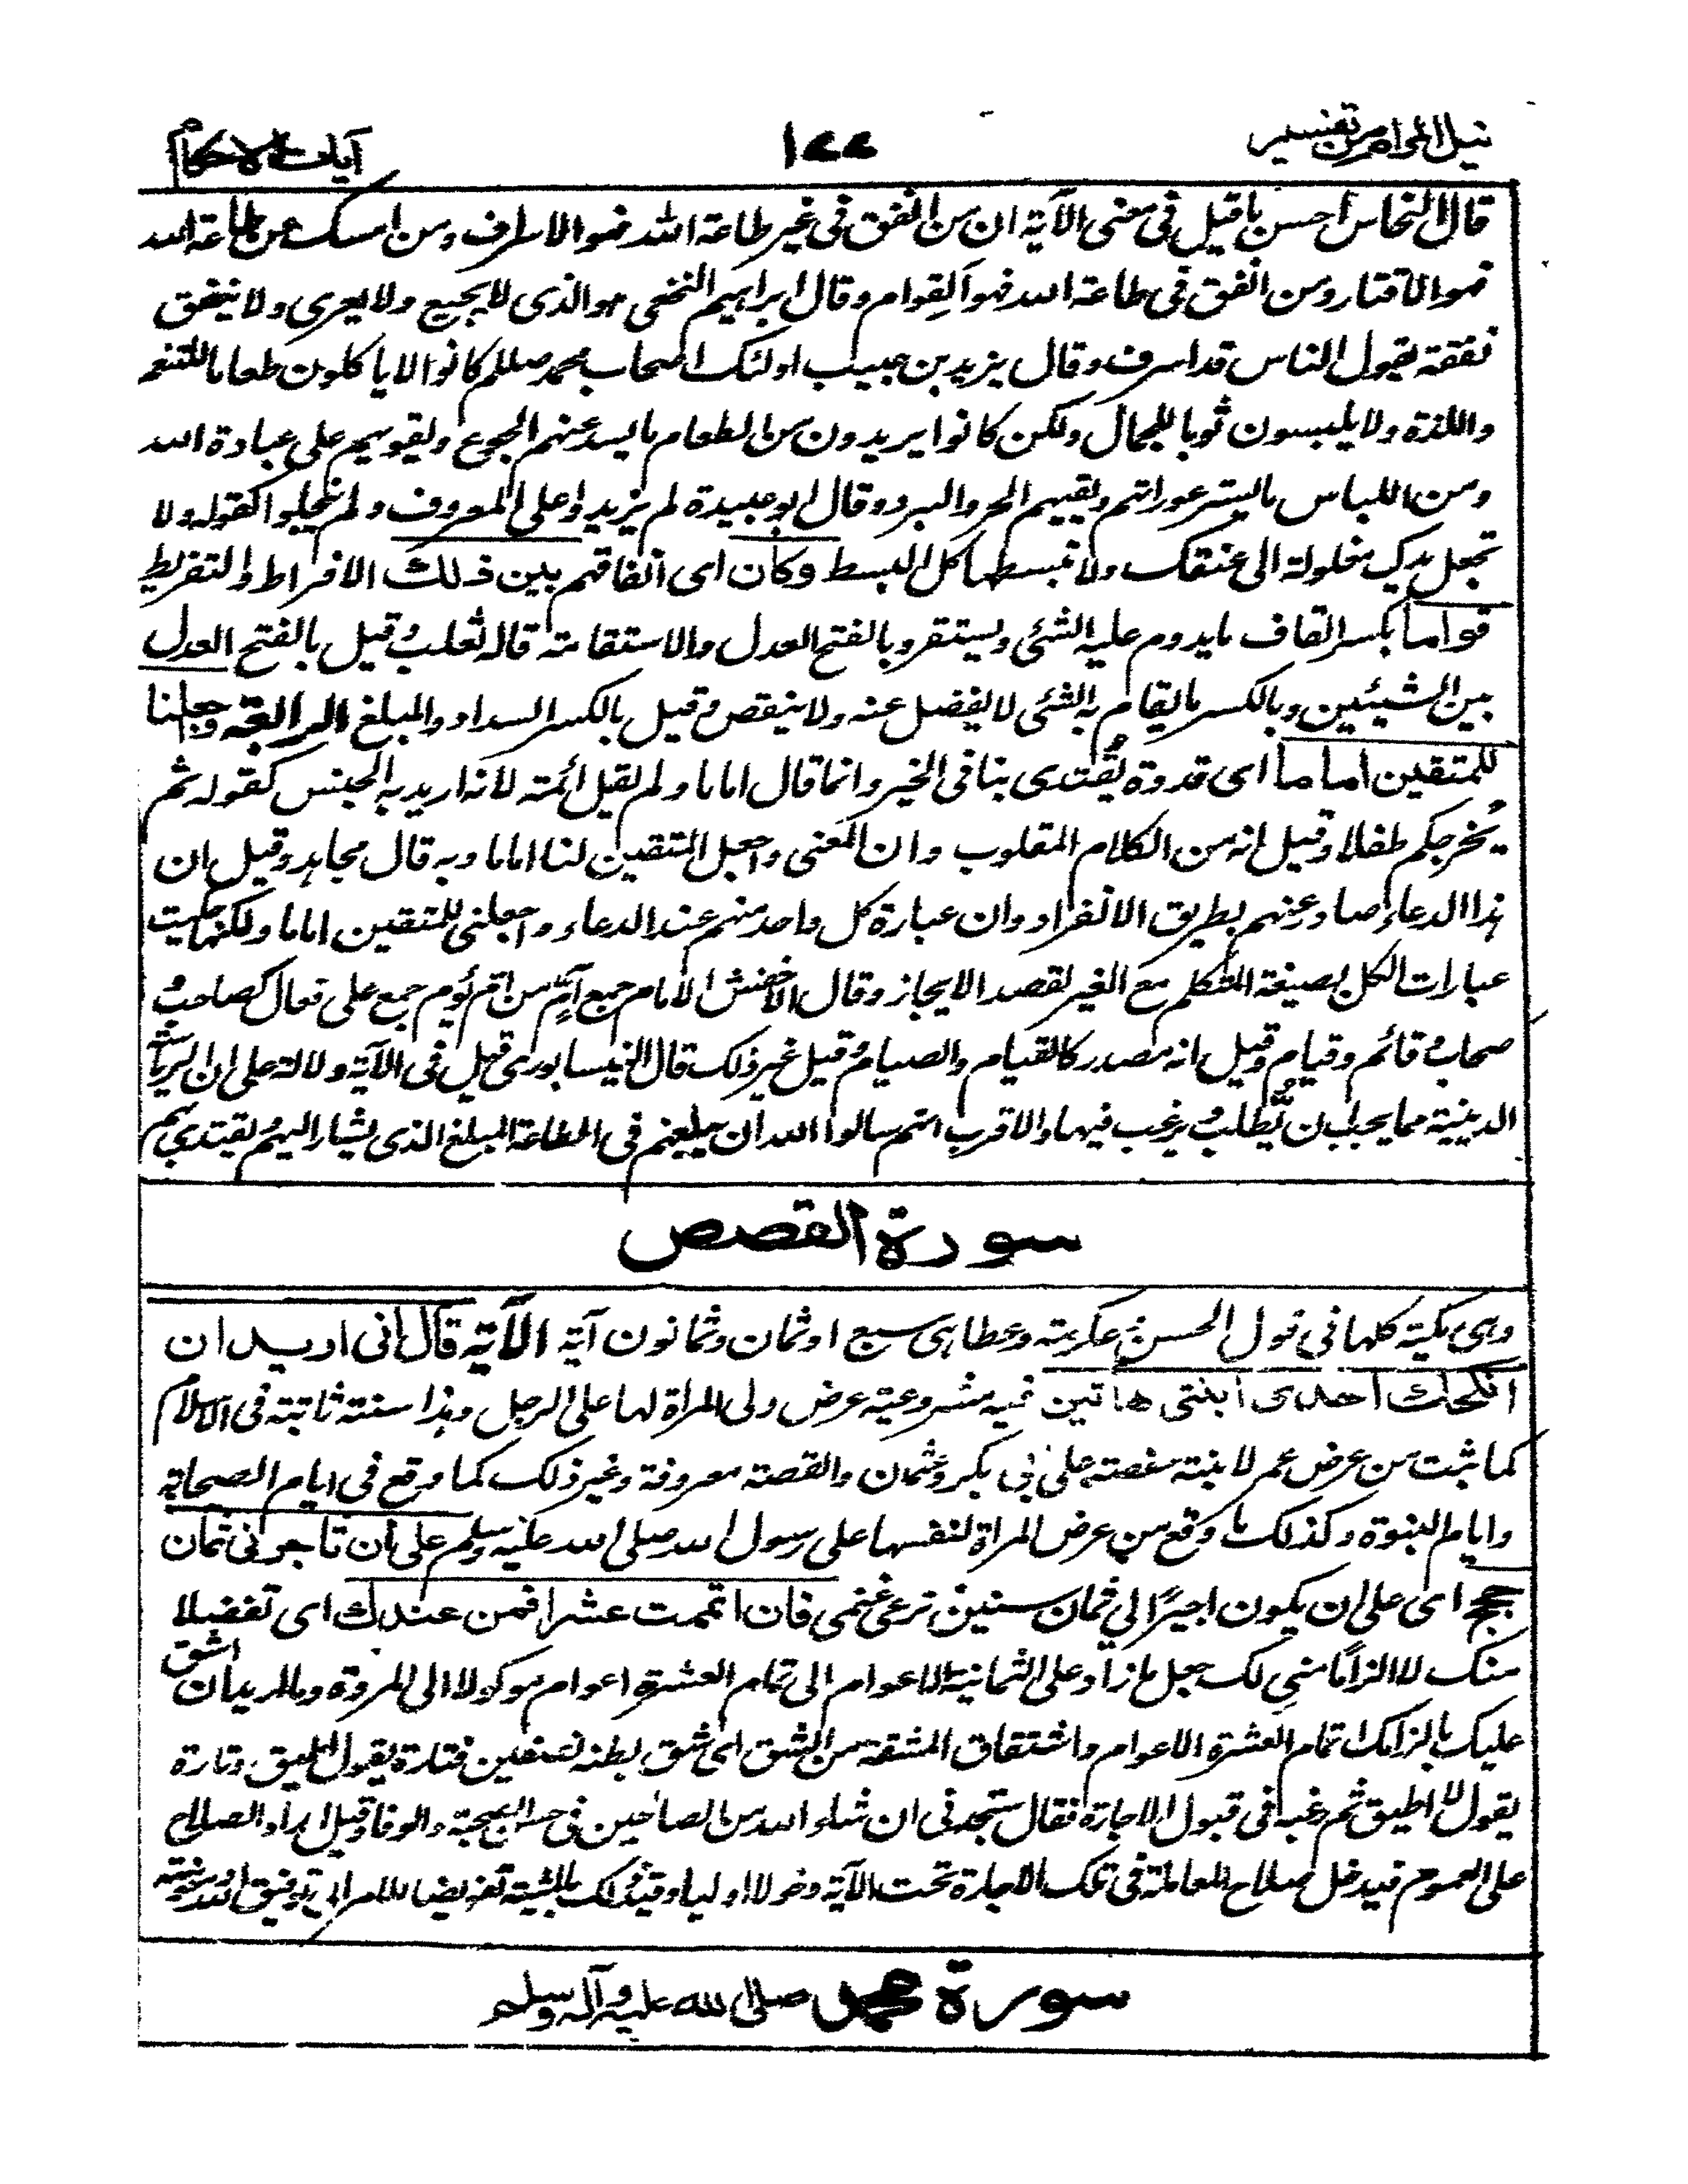 نيل المرام من تفسير ١٧٧ آيات الاحكام
قال النحاس احسن ما قيل فى معنى الآية ان من انفق فى غير طاعة الله فهو الاسراف ومن امسك عن طاعة الله
فهو الاقتار ومن انفق فى طاعة الله فهو القِوام وقال ابراهيم النخعى هو الذى لا يجيع ولا يعرى ولا ينفق
نفقة يقول الناس قد اسرف وقال يزيد بن حبيب اولئك اصحاب محمد صللم كانوا لا ياكلون طعاما للتنعم
واللذة ولا يلبسون ثوبا للجمال ولكن كانوا يريدون من الطعام ما يسد عنهم الجوع ويقويهم على عبادة الله
ومن اللباس ما يستر عوراتهم ويقيهم الحر والبرد وقال ابو عبيدة لم يزيدوا على المعروف ولم يبخلوا كقوله ولا
تجعل يدك مغلولة الى عنقك ولا تبسطها كل البسط وكان اى انفاقهم بين ذلك الافراط والتفريط
قواما بكسر القاف ما يدوم عليه الشئ ويستقر وبالفتح العدل والاستقامة قاله ثعلب وقيل بالفتح العدل
بين الشيئين وبالكسر ما يقام به الشئ لا يفضل عنه ولا ينقص وقيل بالكسر السداد والمبلغ الرابعة وجعلنا
للمتقين اماما اى قدوة يُقتدى بنا فى الخير وانما قال اماما ولم يقل ائمة لانه اريد به الجنس كقوله ثم
يُخرجكم طفلا وقيل انه من الكلام المقلوب وان المعنى واجعل المتقين لنا اماما وبه قال مجاهد وقيل ان
هذا الدعاء صادر عنهم بطريق الانفراد وان عبارة كل واحد منهم عند الدعاء واجعلنى للمتقين اماما ولكنها حكيت
عبارات الكل بصيغة المتكلم مع الغير لقصد الايجاز وقال الاخفش الامام جمع آمّ من امّ يؤم جمع على فعال كصاحب و
صحاب وقائم وقيام وقيل انه مصدر كالقيام والصيام وقيل غير ذلك قال النيسابورى قيل فى الآية دلالة على ان الرياسة
الدينية مما يجب ان يُطلب ويرغب فيها والاقرب انهم سالوا الله ان يبلغهم فى الطاعة المبلغ الذى يشار اليهم ويقتدى بهم
سورة القصص
وهى مكية كلها فى قول الحسن وعكرمة وعطا وهى سبع او ثمان وثمانون آية الآية قال انى اريد ان
انكحك احدى ابنتى هاتين فيه مشروعية عرض ولى المرأة لها على الرجل وهذا سنة ثابتة فى الاسلام
كما ثبت من عرض عمر لابنته حفصة على ابى بكر وعثمان والقصة معروفة وغير ذلك كما وقع فى ايام الصحابة
وايام النبوة وكذلك ما وقع من عرض المرأة لنفسها على رسول الله صلى الله عليه وسلم على ان تاجرنى ثمان
حجج اى على ان يكون اجيرًا لى ثمان سنين ترعى غنمى فان اتممت عشرا فمن عندك اى تفضلا
منك لا الزامًا منى لك جعل ما زاد على الثمانية الاعوام الى تمام العشرة اعوام موكولا الى المروة وما اريد ان اشق
عليك بالزامك اتمام العشرة الاعوام واشتقاق المشقة من الشق اى شق بظنه نصفين فتارة يقول اطيق وتارة
يقول لا اطيق ثم رغبه فى قبول الاجارة فقال ستجدنى ان شاء الله من الصالحين فى حسن الصحبة والوفا وقيل اراد الصلاح
على العموم فيدخل صلاح المعاملة فى تلك الاجارة تحت الآية دخولا اوليا وقيد ذلك بالمشية تفويضا للامر الى توفيق الله ومعونته
سورة محمد صلى الله عليه وآله وسلم